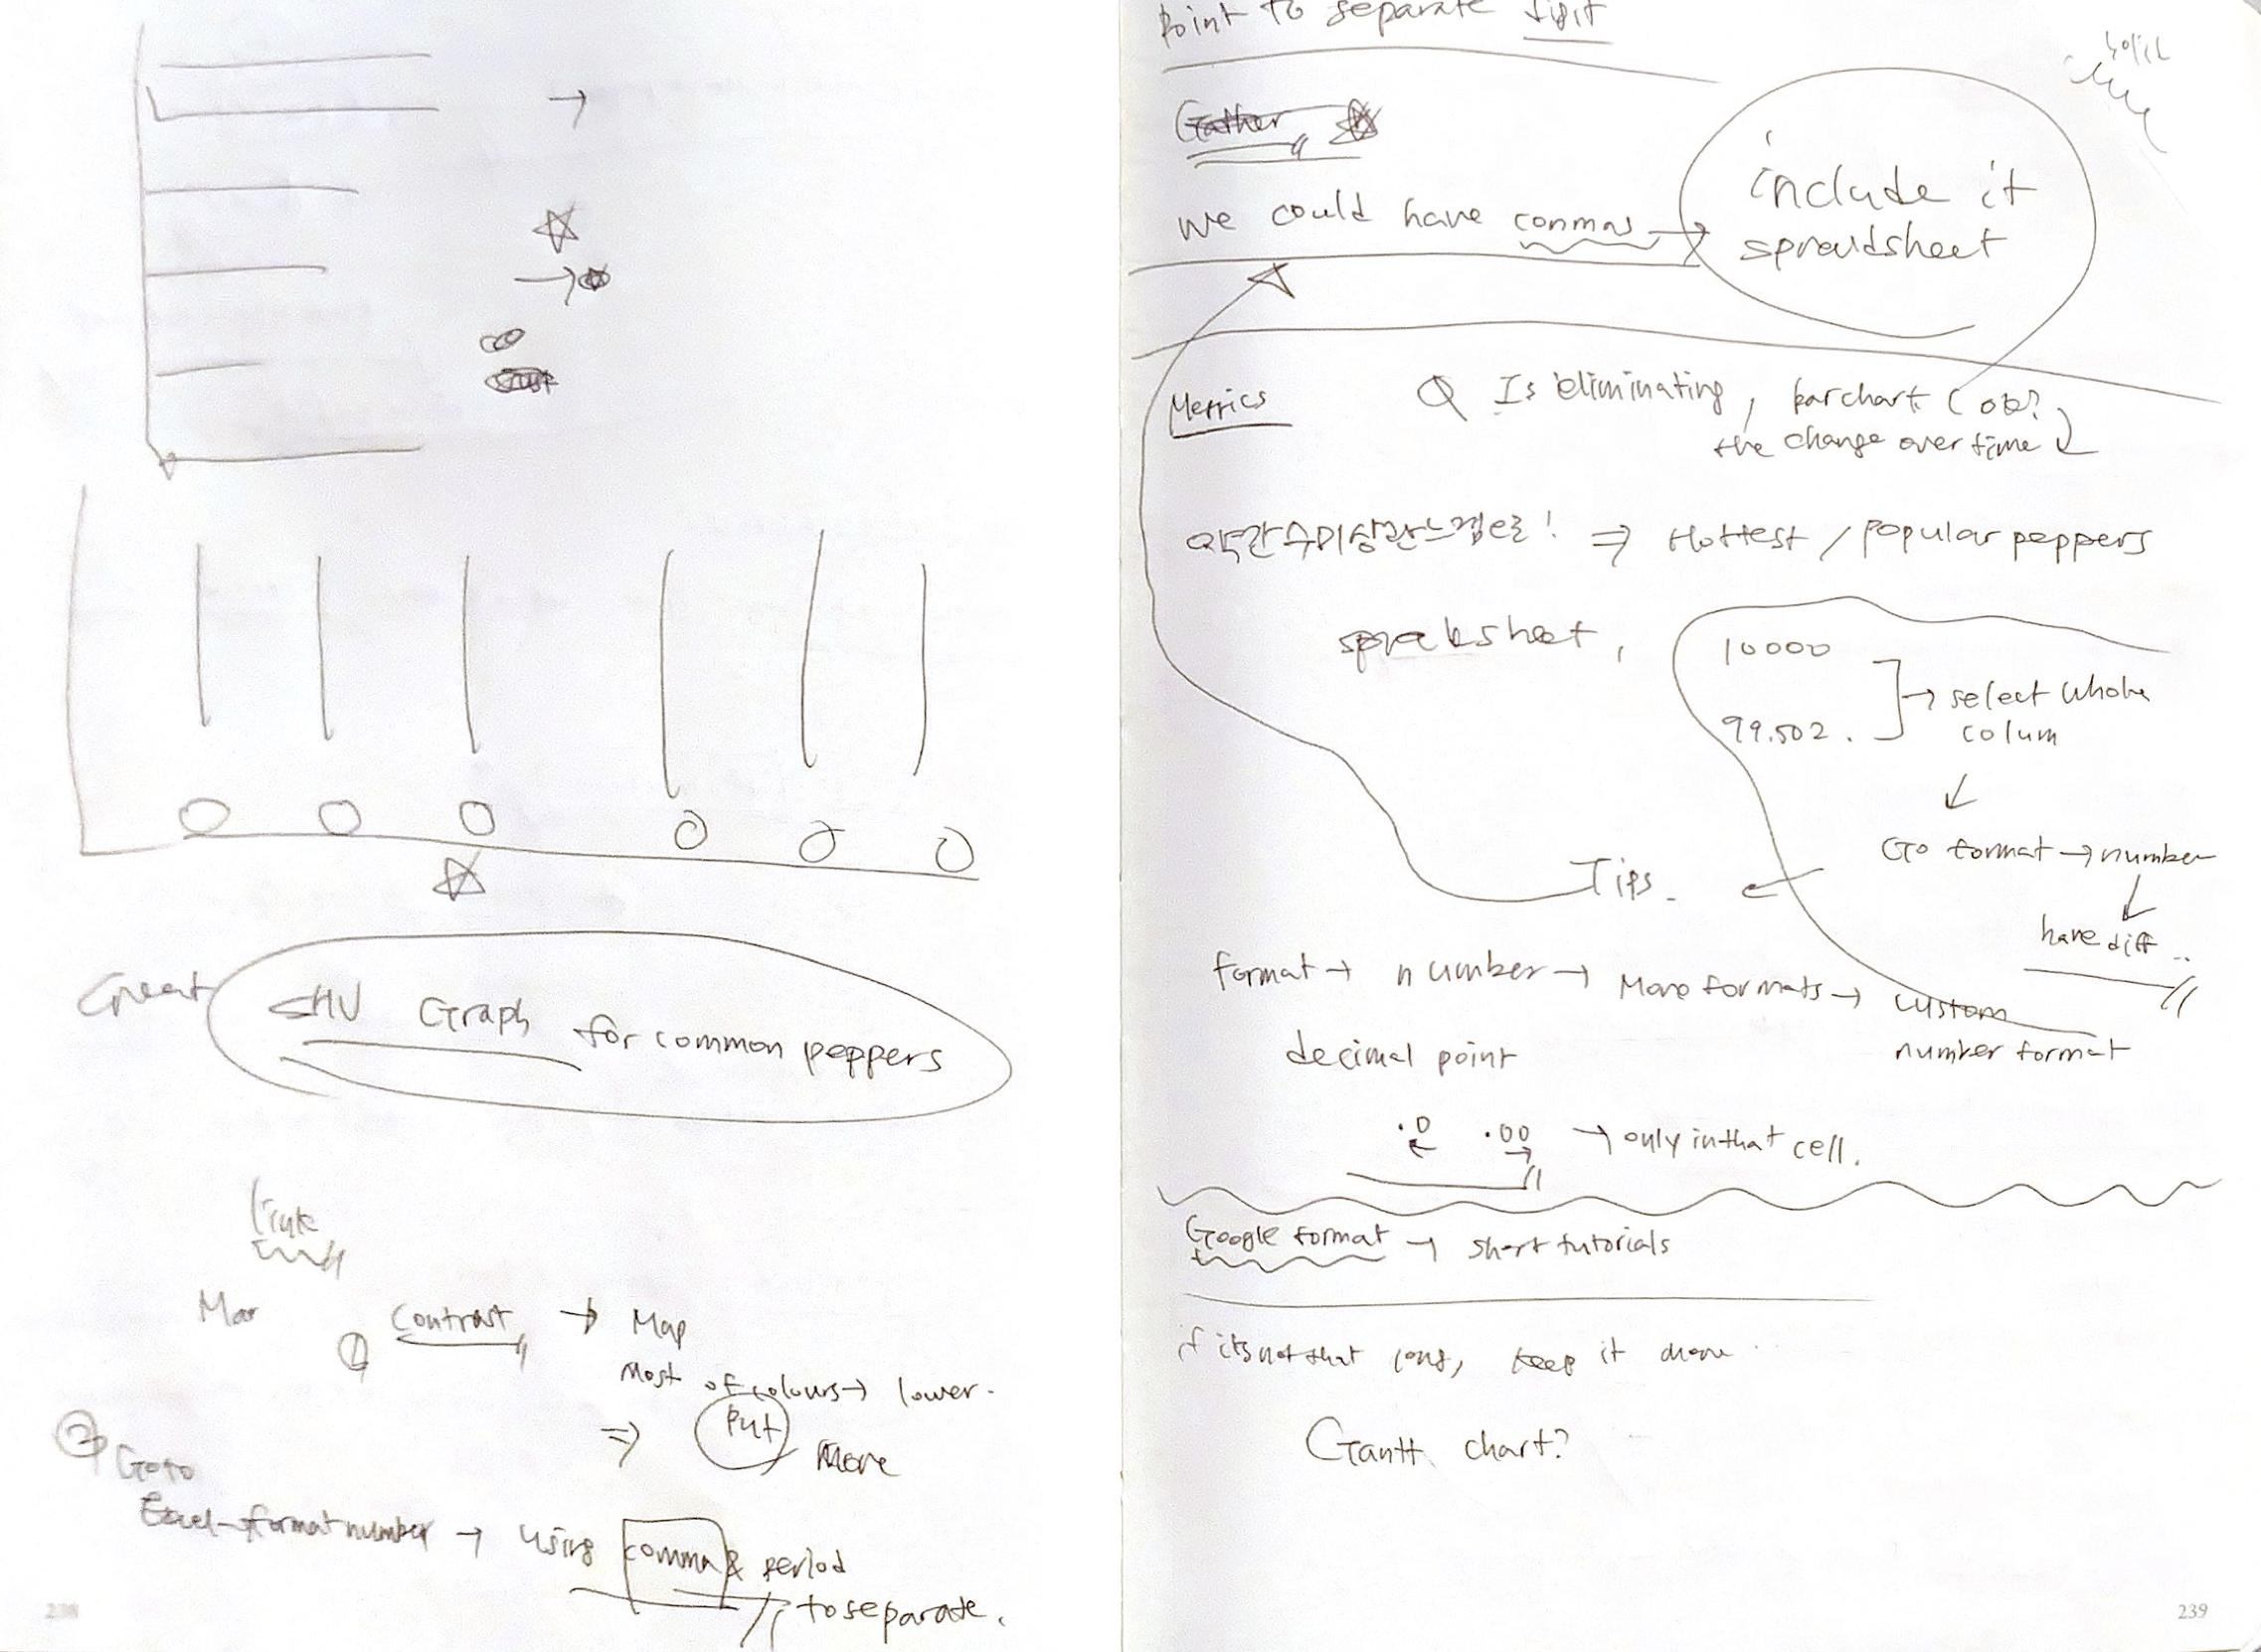 Great SHU Graph for common peppers
Mar
① Contrast → Map
Most of colours → lower.
⇒ Put More
② Go to
Excel → format number → using comma & period
to separate.
238
Point to separate digit
Gather
we could have commas → include it
spreadsheet
Metrics
Q Is eliminating, barchart ( ok?
the change over time )
약간 수미상관 느낌으로! ⇒ Hottest / popular peppers
spreaksheet,
10000
99.502.
→ select whole
colum
↓
Go format → number
↓
have diff ..
Tips.
format → number → More formats → custom
number format
decimal point
.0 .00 → only in that cell.
Google format → short tutorials
if its not that long, keep it
Gantt chart?
239